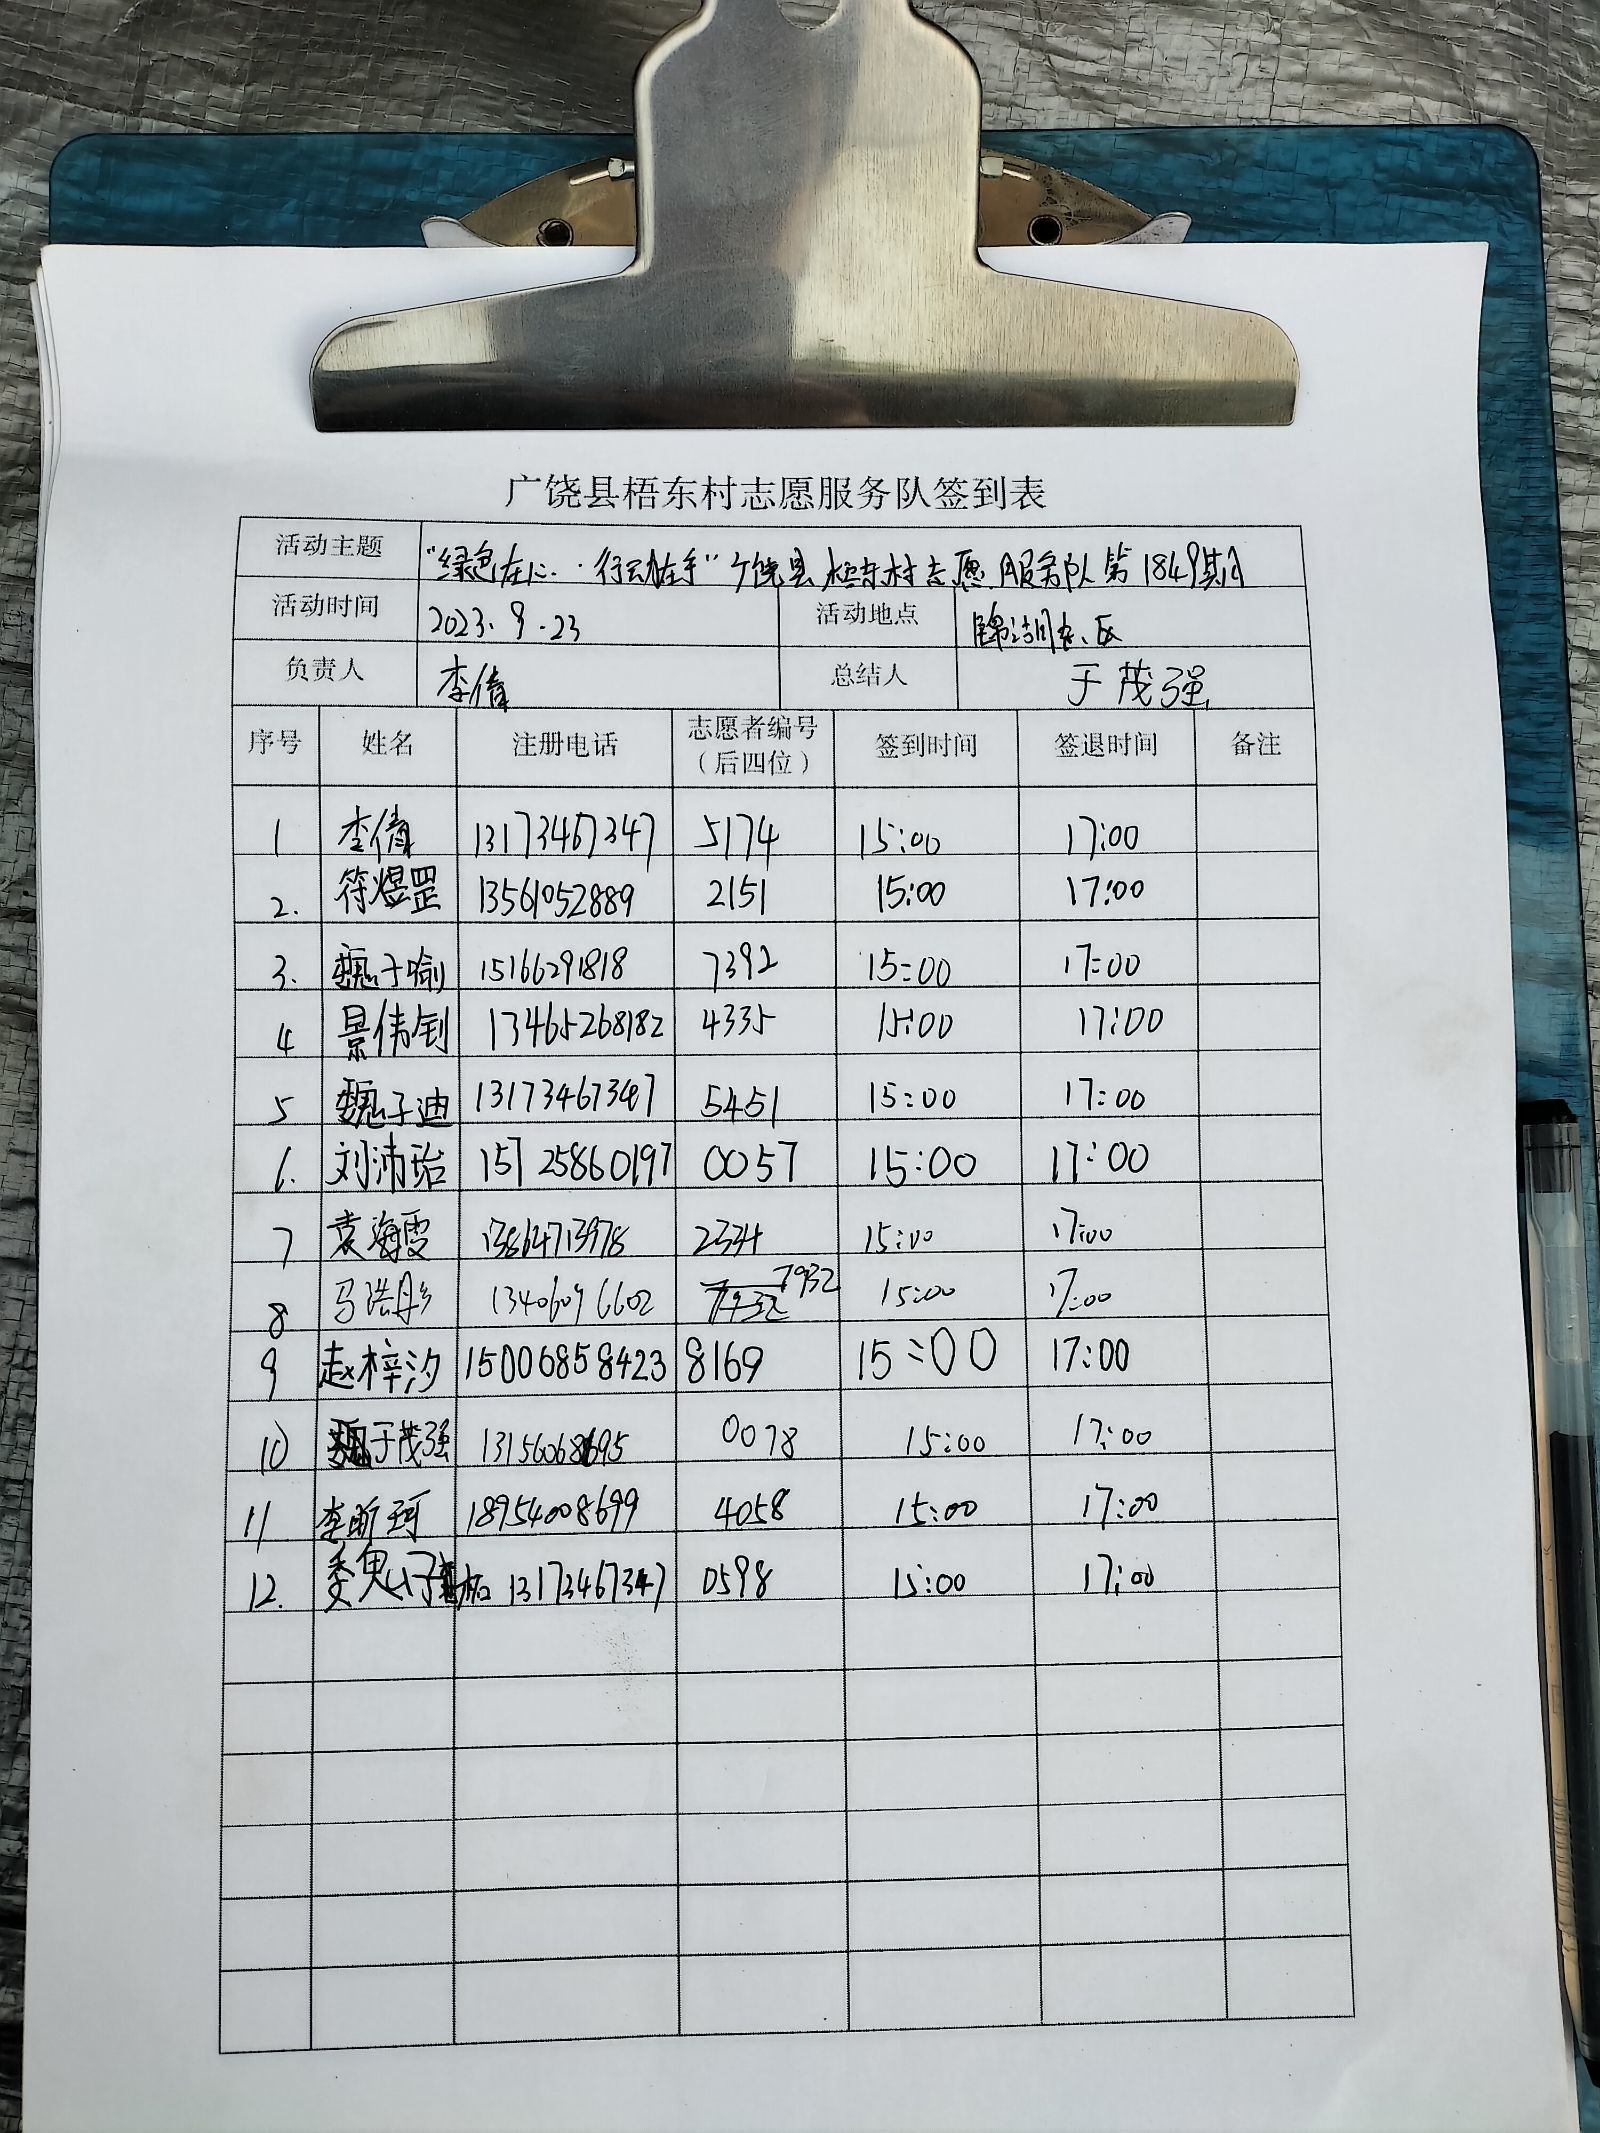 广饶县梧东村志愿服务队签到表
活动主题 “绿色在心·行动在手”广饶县梧东村志愿服务队第1849期
活动时间 2023.9.23 活动地点 锦湖小区
负责人 李倩 总结人 于茂强
序号 姓名 注册电话 志愿者编号（后四位） 签到时间 签退时间 备注
1 李倩 13173467347 5174 15:00 17:00
2. 符煜罡 13561052889 2151 15:00 17:00
3. 魏子喻 15166291818 7392 15:00 17:00
4 景伟钊 13465268182 4335 15:00 17:00
5 魏子迪 13173467347 5451 15:00 17:00
6. 刘沛珆 15725860197 0057 15:00 17:00
7 袁海雯 13864713978 2334 15:00 17:00
8 马浩彤 13406096602 7932 15:00 17:00
9 赵梓汐 15006858423 8169 15:00 17:00
10 于茂强 13156068695 0078 15:00 17:00
11 李昕珂 18954008699 4058 15:00 17:00
12. 魏子柏 13173467347 0598 15:00 17:00